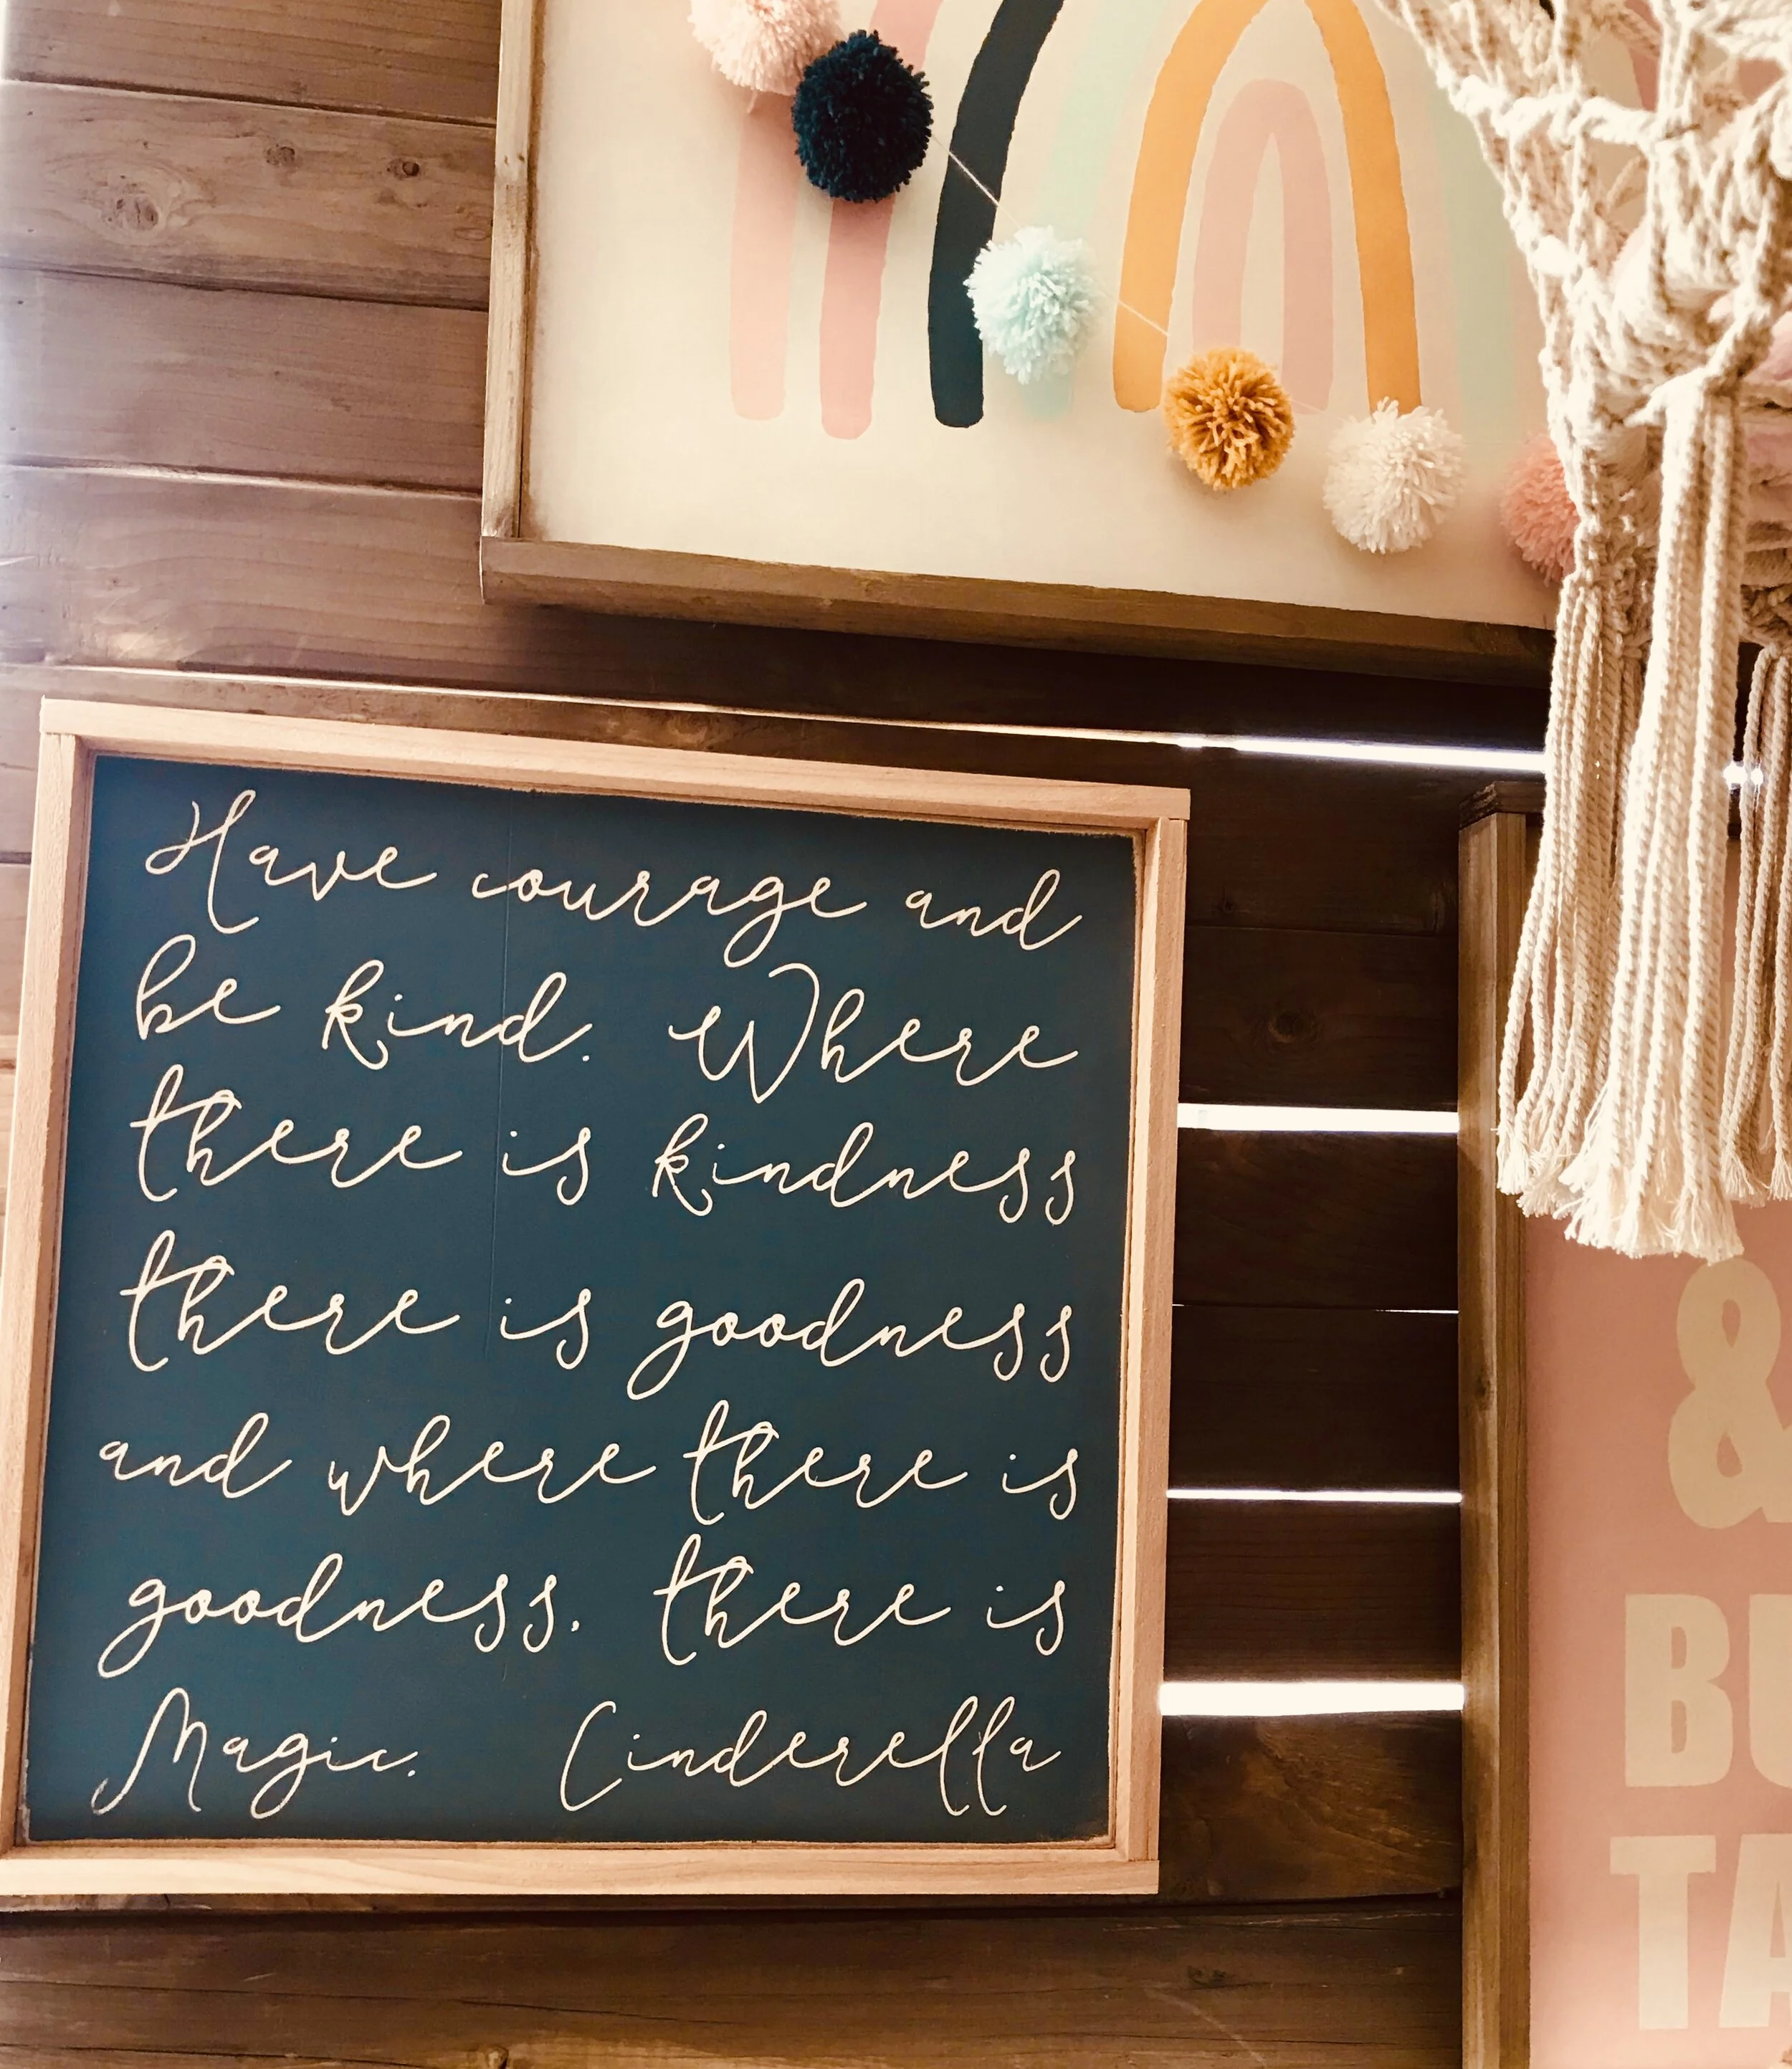 Have courage and
be kind. Where
there is kindness
there is goodness
and where there is
goodness, there is
Magic. Cinderella
&